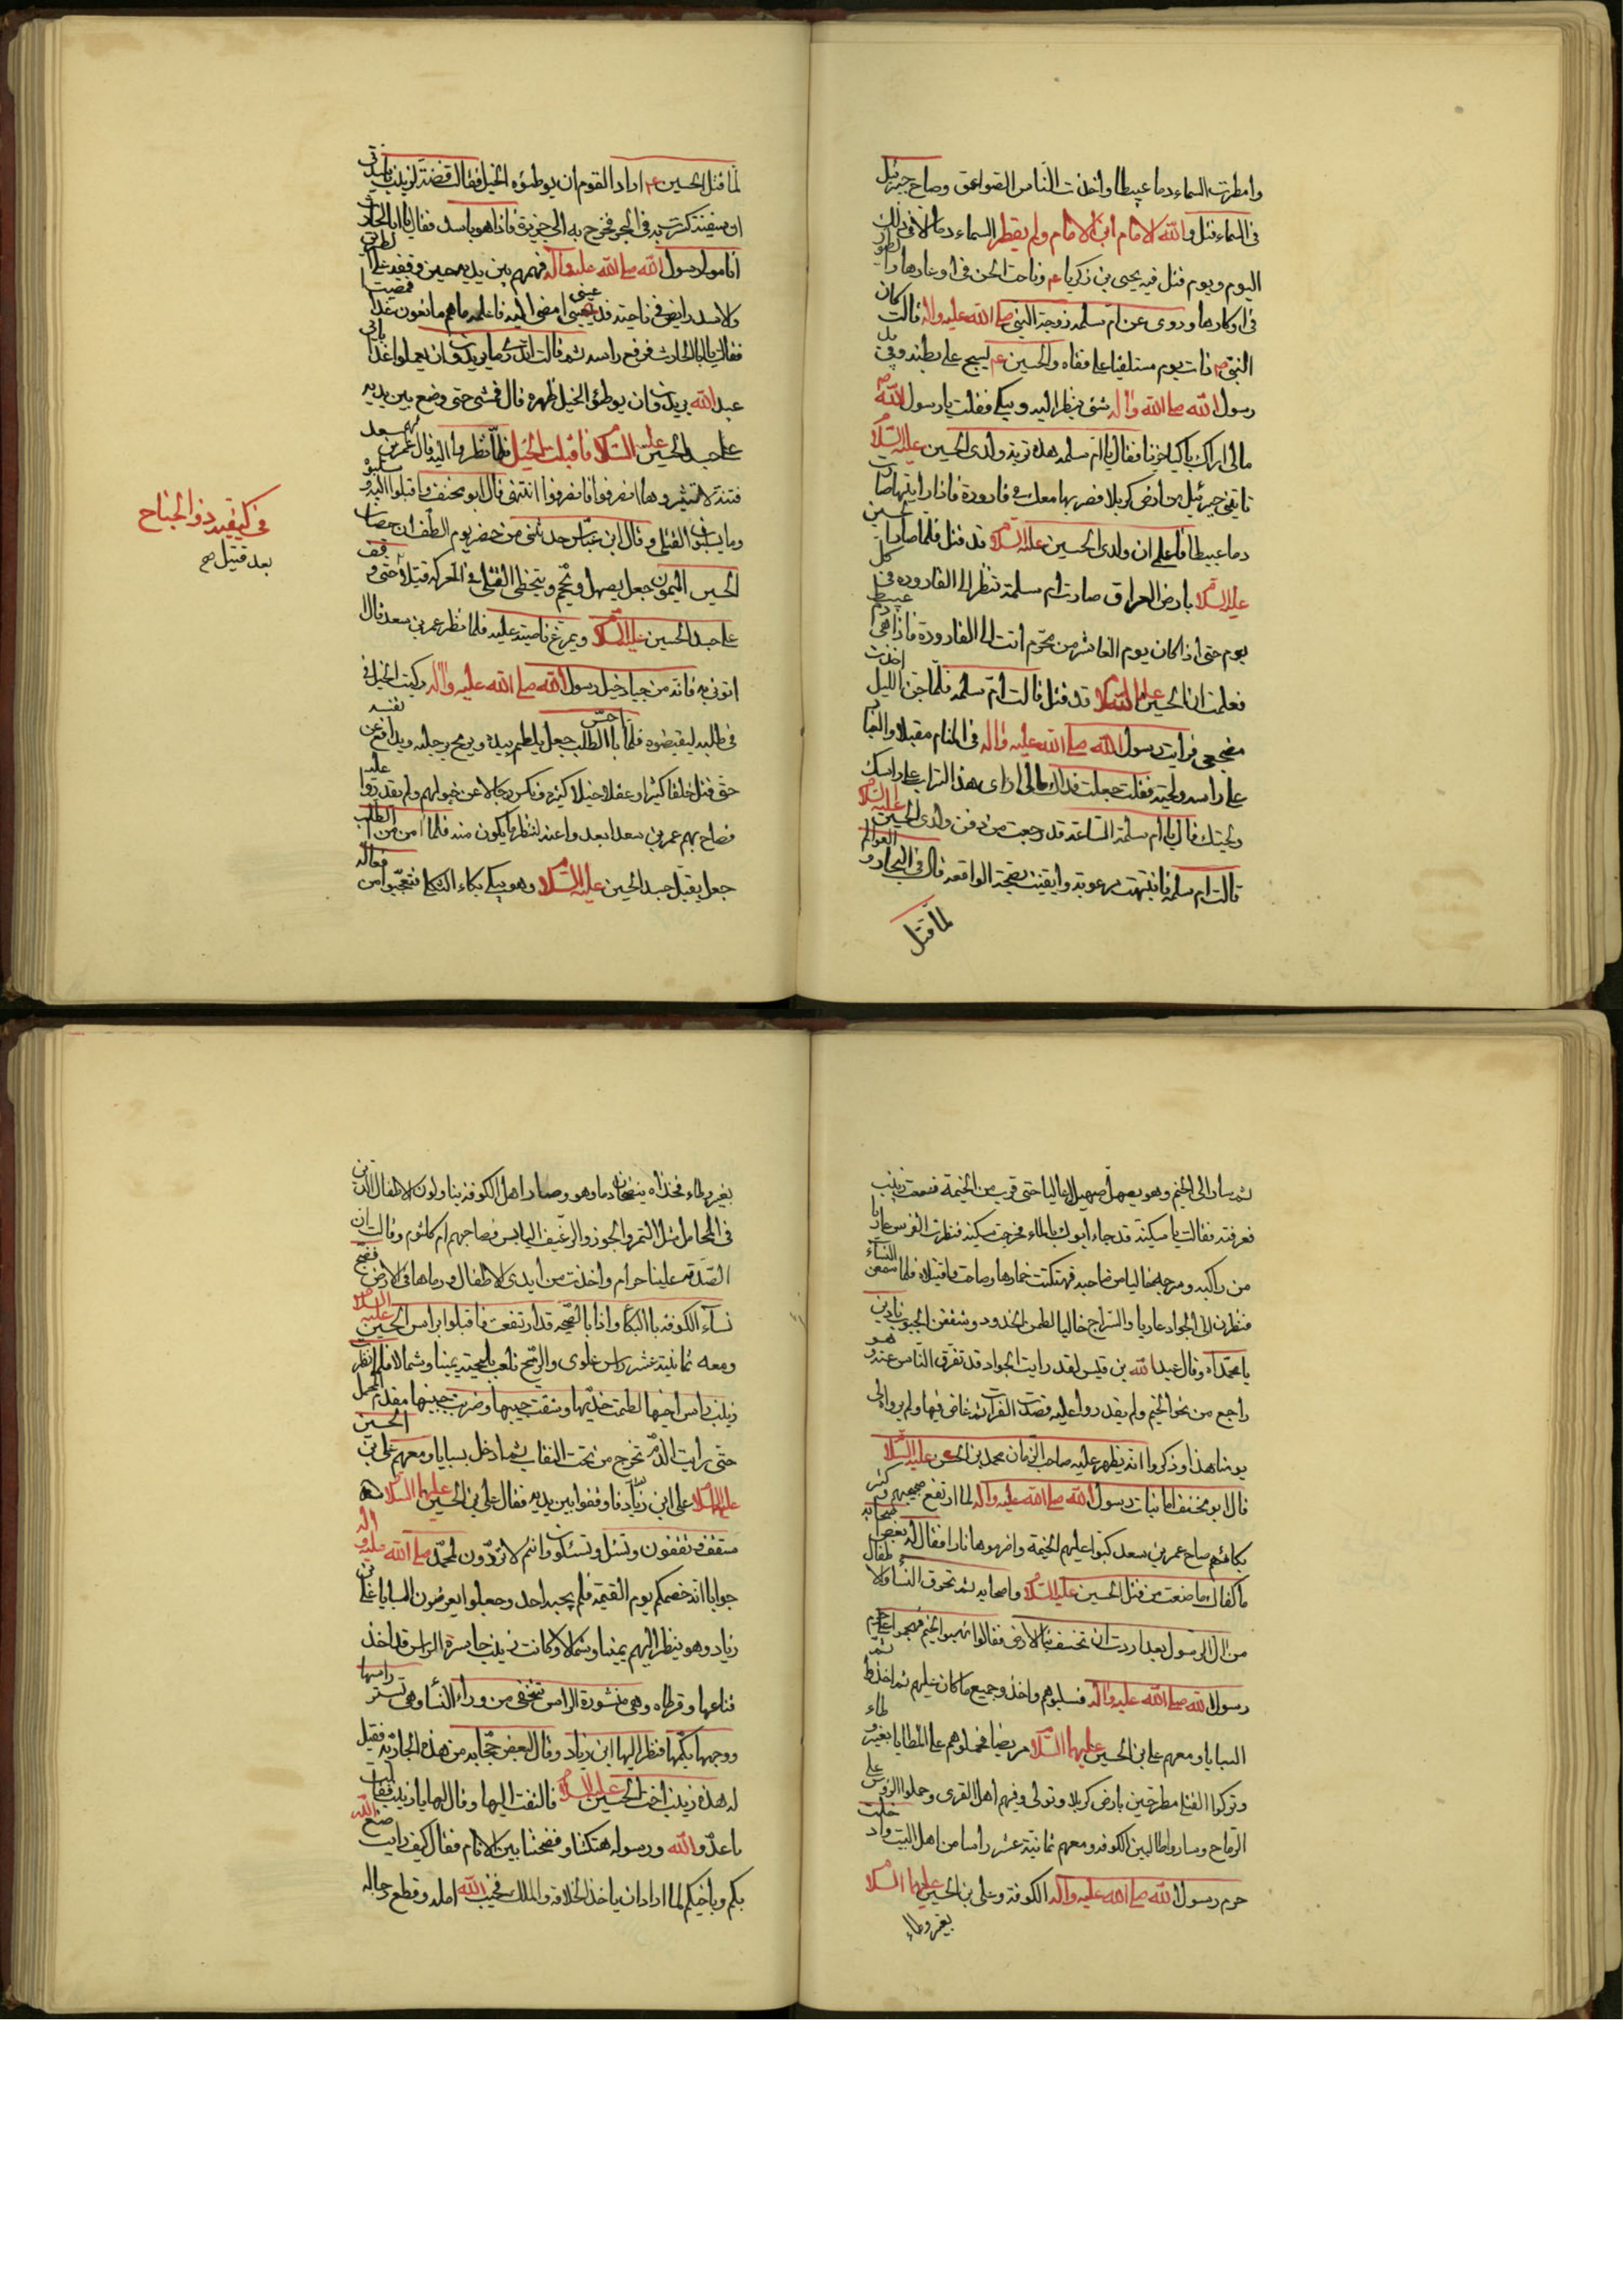 وامطرت السماء دما عبيطا واخذت الناس الصواعق وصاح جبرئيل
فى السماء قتل والله الامام ابن الامام ولم يقطر السماء دما الا فى ذلك
اليوم ويوم قتل فيه يحيى بن زكريا ع وناحت الجن فى اوعارها والطيور
فى اوكارها وروى عن ام سلمه زوجة النبى صلى الله عليه واله قالت كان
النبى ص ذات يوم مستلقيا على قفاه والحسين ع يسبح على بطنه وفى يد
رسول الله صلى الله واله شئ ينظر اليه ويبكى فقلت يا رسول الله ص
مالى اراك باكيا حزينا فقال يا ام سلمه هذه تربة ولدى الحسين عليه السلام
تاتينى جبرئيل من ارض كربلا فصر بها معك فى قارورة فاذا رايتها صارت
دما عبيطا فاعلم ان ولدى الحسين عليه السلام قد قتل فلما صار الحسين
عليه السلام بارض العراق صارت ام سلمة تنظر الى القاروره فى كل
يوم حتى اذا كان يوم العاشر من محرم اتت الى القارورة فاذا هى دم عبيط
فعلمت ان الحسين عليه السلام قد قتل قالت ام سلمه فلما جن الليل اخذت
مضجعى فرايت رسول الله صلى الله عليه واله فى المنام مقبلا والتراب
على راسه ولحيته فقلت جعلت فداك مالى ارى هذا التراب على راسك
ولحيتك قال يا ام سلمة الساعة قد رجعت من دفن ولدى الحسين عليه السلام
قالت ام سلمه فانتبهت مرعوبة وايقنت بصحة الواقعه قال فى البحار والعوالم
لما قتل
لما قتل الحسين ع اراد القوم ان يوطئوه الخيل فقالت فضة لزينب يا سيدتى
ان سفينة كسرت به فى البحر فخرج به الى جزيرة فاذا هو باسد فقال يا ابا الحارث
انا مولا رسول الله صلى الله عليه واله فهمهم بين يديه حين وقفه على الطريق
والاسد رابض فى ناحية فدعينى امضى اليه فاعلمه ما هم صانعون غدا فمضيت
فقالت يا ابا الحارث فرفع راسه ثم قالت اتدرى ما يريدون ان يعملوا غدا بابى
عبد الله يريدون ان يوطئوا الخيل ظهره قال فمشى حتى وضع بين يديه
على جسد الحسين عليه السلام فاقبلت الخيل فلما نظروا اليه قال عمر بن سعد
فتنة لا تثيروها انصرفوا فانصرفوا انتهى قال ابو مخنف واقبلوا اليه
وما يسلبون القتلى وقال ابن عباس حدثنى من حضر يوم الطف ان حصان
الحسين الميمون جعل يصهل ويحمحم ويتخطى القتلى فى المعركه قتيلا حتى وقف
على جسد الحسين عليه السلام ويمرغ ناصيته عليه فلما نظر عمر بن سعد قال
اتونى به فانه من جياد خيل رسول الله صلى الله عليه واله ركبت الخيل فى
فى طلبه ليقبضوه فلما احس بالطلب جعل يلطم بيديه ويرمح برجليه ويدافع عن نفسه
حتى قتل خلقا كثيرا وعقلا وخيلا كثيره ونكس رجالا عن خيولهم ولم يقدروا عليه
فصاح بهم عمر بن سعد ابعدوا عنه لننظر ما يكون منه فلما امن من الطلب
جعل يقبل جسد الحسين عليه السلام وهو يبكى بكاء الثكلى فتعجبوا من فعاله
فى كيفية ذو الجناح
بعد قتيل صح
ثم سار الى الخيم وهو يصهل صهيلا عاليا حتى قرب من الخيمة فسمعت زينب
فعرفته فقالت يا سكينة قد جاء ابوك بالماء فخرجت سكينه فنظرت الفرس عاريا
من راكبه وسرجه خاليا من صاحبه فهتكت خمارها وصاحت واقتيلاه فلما سمعن النساء
فنظرن الى الجواد عاريا والسراج خاليا لطمن الخدود وشققن الجيوب ناديين
يا محمداه وقال عبد الله بن قيس لقد رايت الجواد قد تفرق الناس عنه وهو
راجع من نحو الخيم ولم يقدروا عليه قصدت الفرات ثم غاض فيها ولم يرو الى
يومنا هذا وذكروا انه يظهر عليه صاحب الزمان محمد بن الحسن عليه السلام
قال ابو مخنف اما بنات رسول الله صلى الله عليه واله لما ارتفع ضجيجهم وكثر
بكائهم صاح عمر بن سعد كبوا عليهم الخيمة واضرموها نارا فقال له بعض اصحابه
ما كفاك ما صنعت من قتل الحسين عليه السلام واصحابه ثم تحرق النساء والاطفال
من ال الرسول بعد اردت ان تخسف بنا الارض فقالوا نهبوا الخيم فهجموا على حرم
رسول الله صلى الله عليه واله فسلبوهم واخذوا جميع ما كان عليهم ثم اخذوا
السبايا ومعهم على بن الحسين عليهما السلام مريضا فحملوهم على المطايا بغير وطاء
وتركوا القتلى مطرحين بارض كربلا وتولى دفنهم اهل القرى وحملوا الرؤس على
الرماح وساروا طالبين الكوفه ومعهم ثمانية عشر راسا من اهل البيت واد خلت
حرم رسول الله صلى الله عليه واله الكوفة وعلى بن الحسين عليهما السلام
بغير وطاء
بغير وطاء فخذاه ينضحان دما وهو وصار اهل الكوفة يناولون الاطفال الذين
فى المحامل مثل التمر والجوز والرغيف اليابس فصاح بهم ام كلثوم وقالت ان
الصدقه علينا حرام واخذت من ايدى الاطفال ورماها فى الارض فضج
نساء الكوفه بالبكاء واذا بالضجه قد ارتفعت فاقبلوا براس الحسين عليه السلام
ومعه ثمانية عشر راس علوى والرمح تلعب بلحيته يمينا وشمالا فلما نظر
زينب راس اخيها لطمت خديها وشقت جيبها وضربت جبينها مقدم المحمل
حتى رايت الدم تخرج من تحت النقاب ثم ادخل بسبايا ومعهم على بن الحسين
عليهما السلام على ابن زياد فاوقفوا بين يديه فقال على بن الحسين عليهما السلام
ستقف وتقفون وتسئل وتسئلون وانتم لا تردون لمحمد صلى الله عليه واله
جوابا انه خصمكم يوم القيمة فلم يجبه احد وجعلوا يعرضون السبايا على ابن
زياد وهو ينظر اليهم يمينا وشمالا وكانت زينب حاسرة الراس قد اخذ
قناعها وقرطاه وهى منشورة الراس تتخفى من وراء النساء وهى تستر راسها
ووجهها بكمها فنظر اليها ابن زياد وقال لبعض حجابه من هذه الجارية فقيل
له هذه زينب اخت الحسين عليه السلام فالتفت اليها وقال لها يا زينب فقالت
يا عدو الله ورسوله هتكتنا وفضحتنا بين الانام فقال كيف رايت صنع الله
بكم وباخيكم لما اراد ان ياخذ الخلافة والملك فخيب الله امله وقطع رجاله